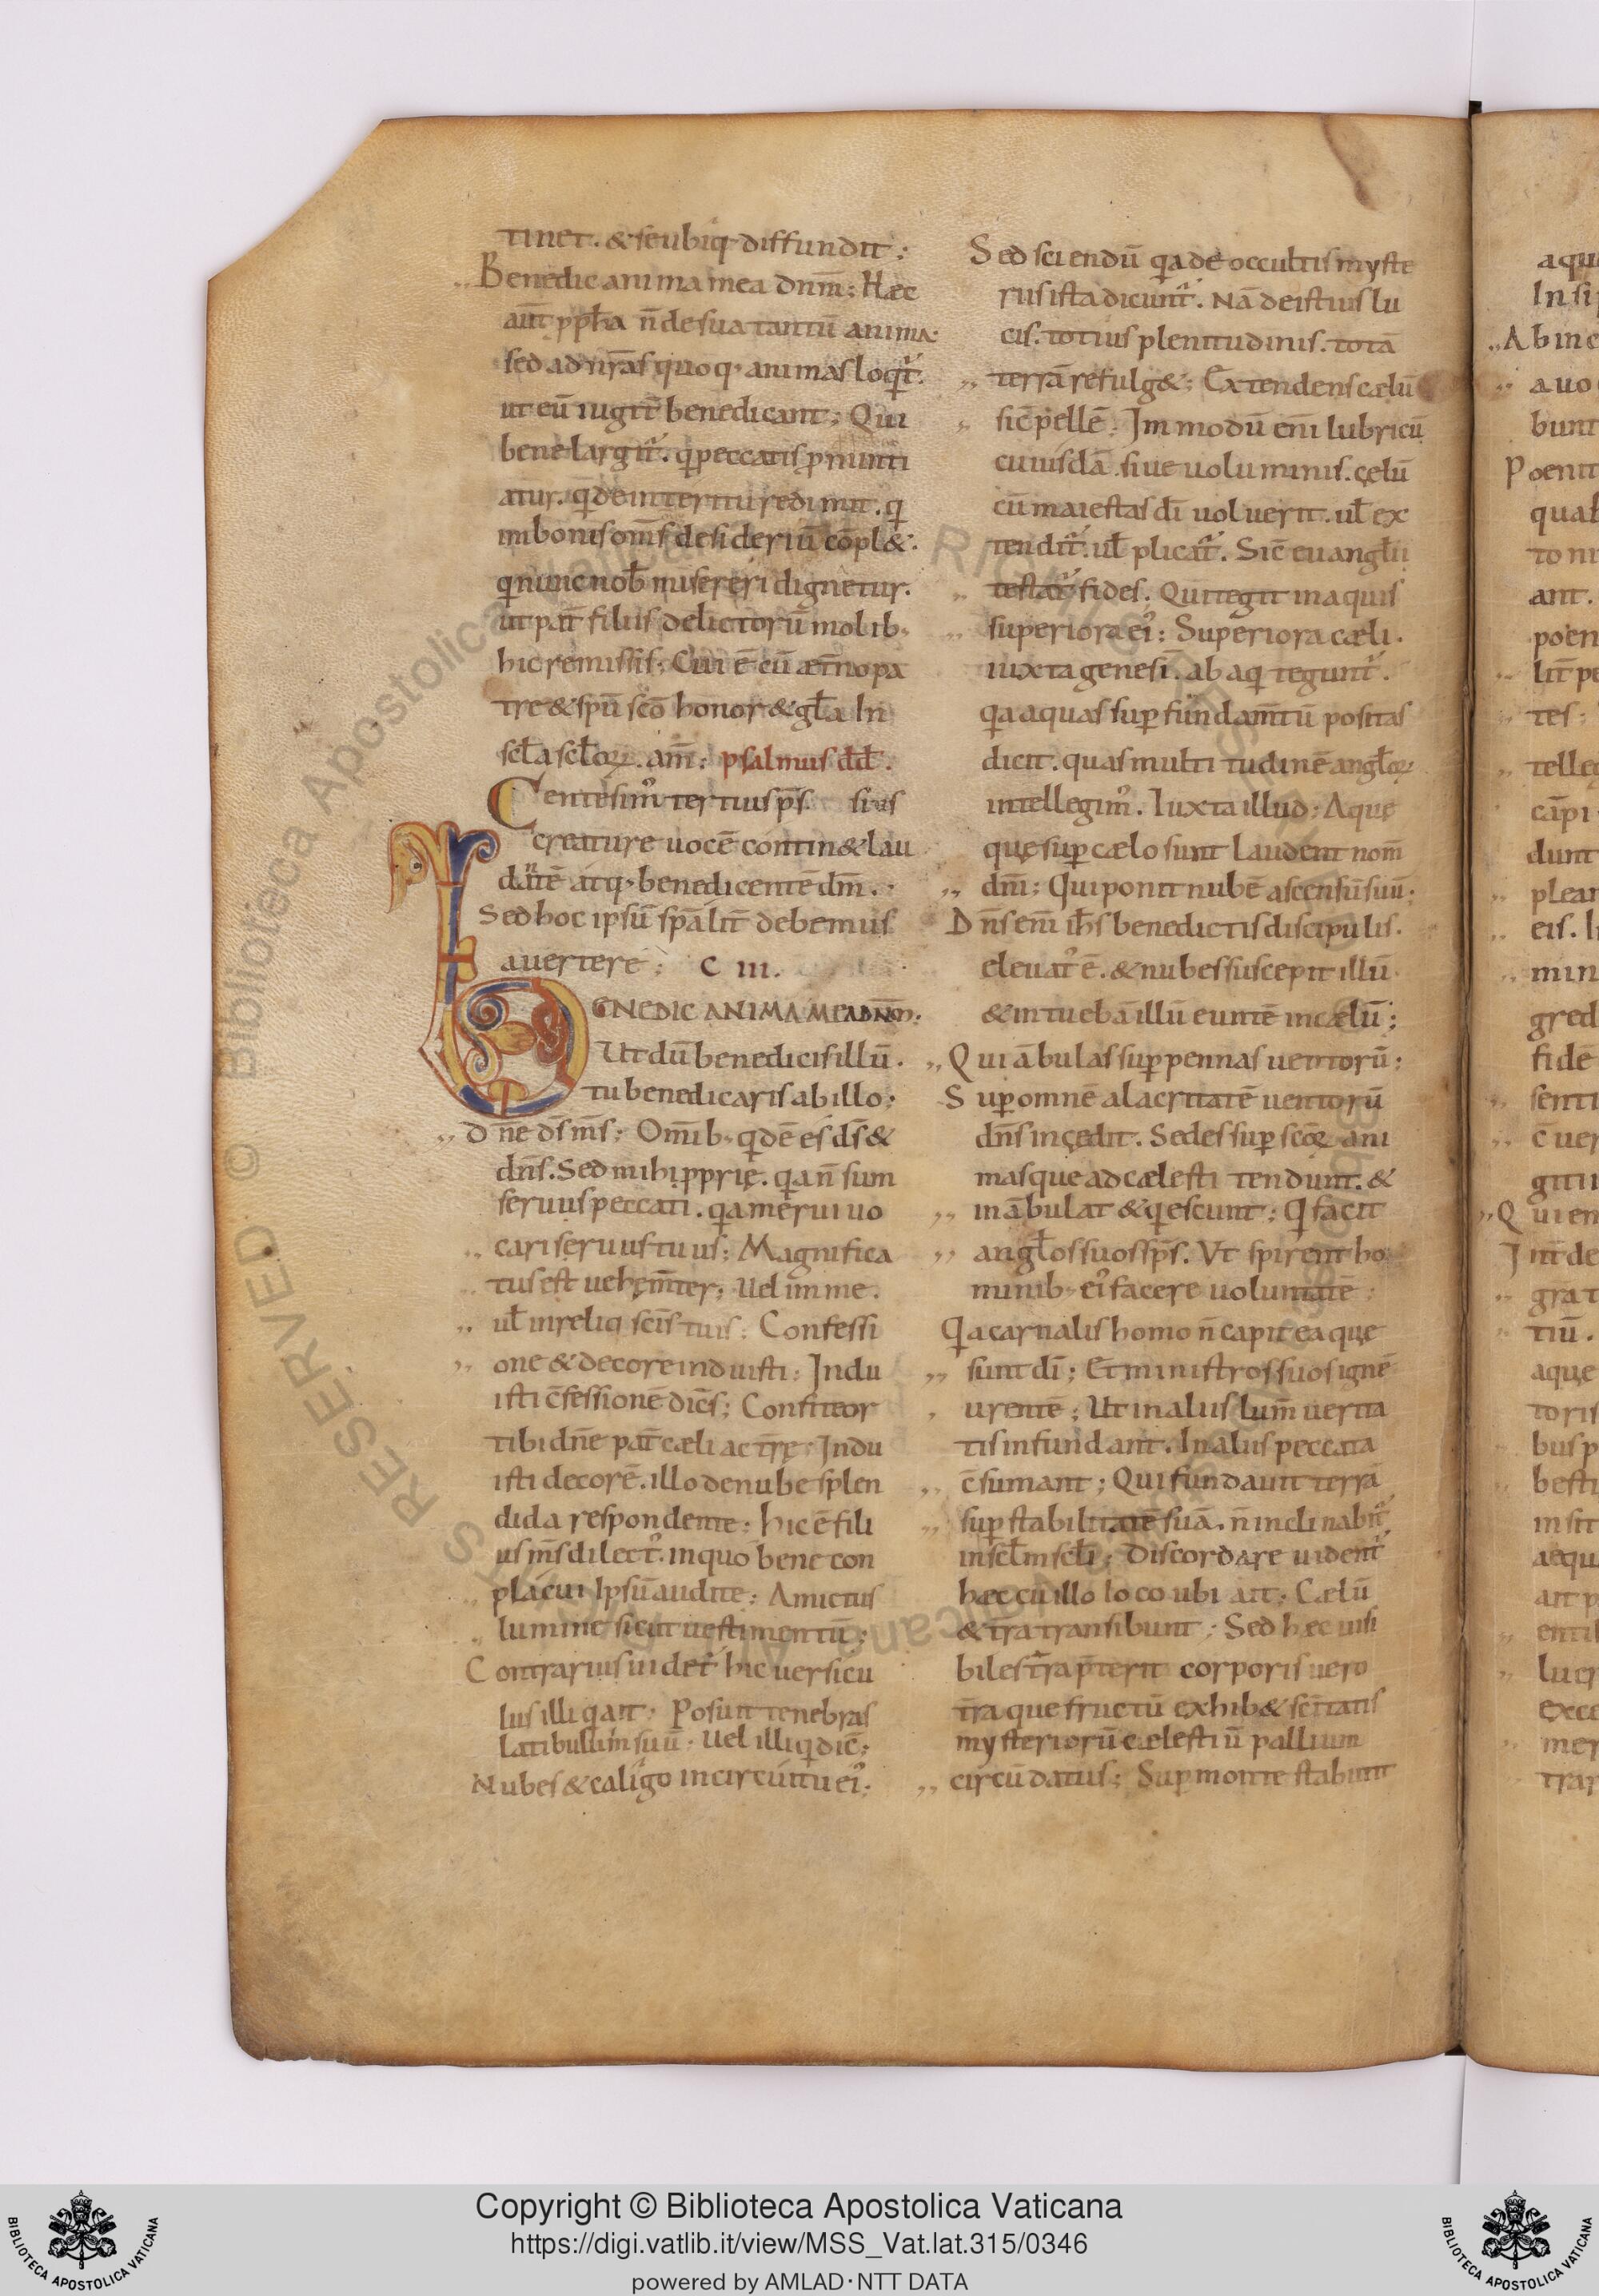 tinet. & se ubiq; diffundit;
Benedic anima mea dnm̄: Haec
aūt ꝓph̄a n̄ de sua tantū anima.
sed ad nr̄as quoq; animas loqit᷑.
ut eū iugit̄ benedicant; Qui
bene largit᷑. q̇ peccatis ꝓmunti
atur. q̇ de interitu redimit. q̇
in bonis om̄s desideriū cōpl&.
q̇ nunc nob̄ misereri dignetur.
hic remissis; Cui ē cū aet̄no pa
tre & spū scō honor & gl̄a In
scl̄a scl̄oꝝ. am̄: psalmus dd̄.
Centesim᷒ tertius ps̄.
creature uocē contin& lau
dātē atq; benedicentē dm̄.
Sed hoc ipsū sp̄alit̄ debemus
auertere: C III.
BENEDIC ANIMA MEA DN̄M:
Ut dū benedicis illū.
tu benedicaris ab illo;
Dn̄e ds̄ ms̄; Om̄ib; q̇dē es ds̄ &
dn̄s. Sed mihi ꝓprię. q̇a n̄ sum
seruus peccati. q̇a merui uo
cari seruus tuus; Magnifica
tus est uehem̄ter; Uel in me.
ul̄ in reliq̇ scīs tuis: Confessi
one & decore induisti: Indu
isti c̄fessionē dic̄s; Confiteor
tibi dn̄e pat̄ cæli ac tr̄ę: Indu
isti decorē. illo de nube splen
dida respondente: hic ē fili
us ms̄ dilect᷒. in quo bene con
placui Ipsū audite: Amictus
lumine sicut uestimentū;
Contrarius uidet᷑ hic uersicu
lus illi q̇ ait: Posuit tenebras
Latibulum suū: Uel illi q̇ dic̄;
Nubes & caligo in circuitu ei᷒.
Sed sciendū q̇a de occultis myste
riis ista dicunt᷑. Nā de istius lu
cis. totius plenitudinis. totā
terrā refulg&; Extendens cælū
sic̄ pellē; Im modū eni̅ lubricū
cuiusdā. siue uoluminis. cęlū
cū maiestas dī uoluerit. ul̄ ex
tendit᷑. ul̄ plicat᷑. Sic̄ euangl̄ii
testat᷑ fides. Qui tegit in aquis
superiora ei᷒: Superiora cæli.
iuxta genesi̅. ab aq̇ tegunt᷑.
q̇a aquas sup̱ fundam̄tū positas
dicit. quas multitudinē angl̄oꝝ
intellegim᷒. Iuxta illud: Aquę
quę sup̱ cælo sunt laudent nom̄
dn̄i: Qui ponit nubē ascensū suū;
Dn̄s eni̅ ih̄s benedictis discipulis.
eleuat᷒ ē. & nubes suscepit illū
& intuebā illū euntē in cælū;
Qui ābulas sup̱ pennas uentorū:
Sup̱ omnē alacritatē uentorū
dn̄s incędit. Sedes sup̱ scōꝝ ani
mas que ad cælesti tendunt. &
in ābulat & q̇escunt; Q̇ facit
angl̄os suos sps̄. Vt spirent ho
minib; ei᷒ facere uoluntatē;
Q̇a carnalis homo n̄ capit ea quę
sunt dī; Et ministros suos ignē
urentē; Ut in aliis lum̄ uerita
tis infundant. In aliis peccata
c̄sumant; Qui fundauit terrā
sup̱ stabilitatē suā. n̄ inclinabit᷑
in scl̄m scl̄i; Discordare uident᷑
hæc cū illo loco ubi ait: Cælū
& tra transibunt; Sed hęc uisi
biles tr̄a p̄terit corporis uero
tr̄a que fructū exhib& sc̄itatis
mysteriorū cælestiū pallium
circūdatus; Sup̱ monte stabunt
Copyright © Biblioteca Apostolica Vaticana
https://digi.vatlib.it/view/MSS_Vat.lat.315/0346
powered by AMLAD·NTT DATA